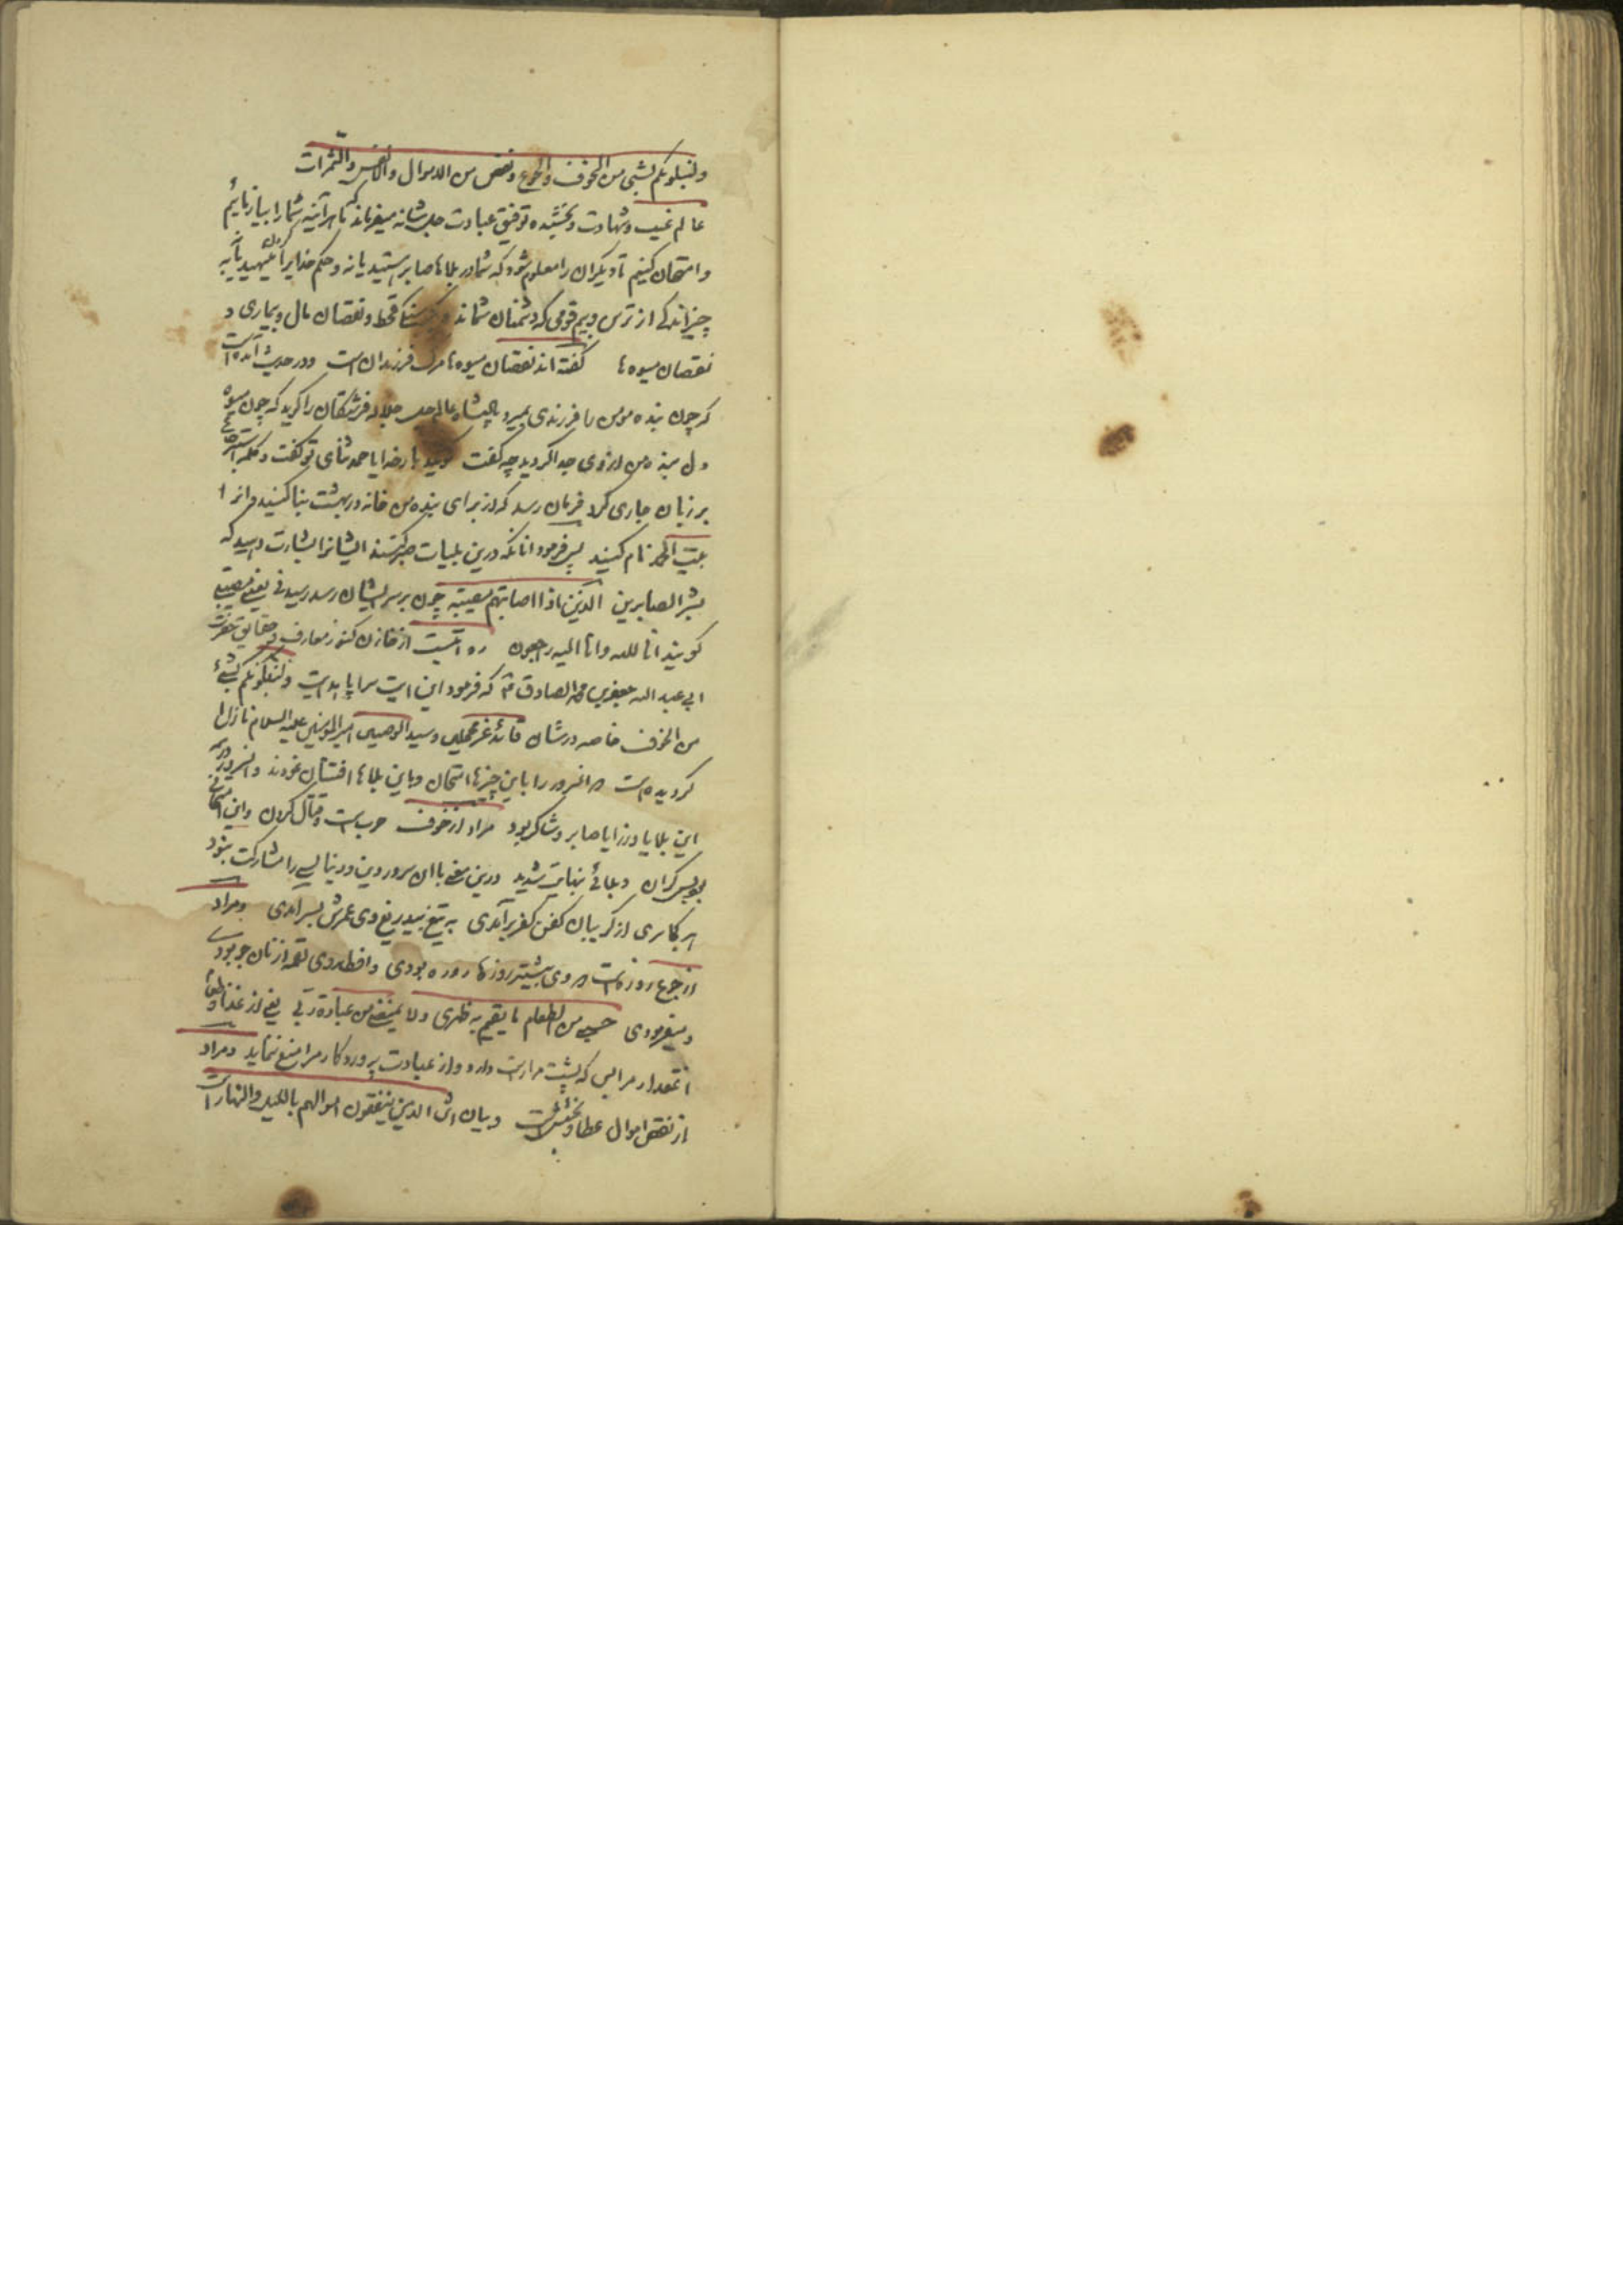 ولنبلونکم بشی من الخوف والجوع ونقص من الاموال والانفس والثمرات
عالم غیب وشهادت وبخشنده توفیق عبادت جل شانه میفرماید که ما هر آینه شما را بیازمائیم
وامتحان کنیم تا دیگران را معلوم شود که شما در بلاها صابر هستید یا نه و حکم خدایرا
چیز اندکی از ترس وبیم قومی که دشمنان شمااند و قحط ونقصان مال وبیماری و
نقصان میوه ها گفته اند نقصان میوه ها مرگ فرزندان است ودر حدیث آمده است
که چون بنده مومن را فرزندی بمیرد پادشاه عالم جل جلاله فرشتگان را گوید که چون میوه
دل بنده من از وی جدا کردید چه گفت گویند بار خدایا حمد ثنای تو گفت وکلمه استرجاع
بر زبان جاری کرد فرمان رسد که از برای بنده من خانه در بهشت بنا کنید و انرا
بیت الحمد نام کنید پس فرمود انانکه درین بلیات صبر کنند ایشانرا بشارت دهید که
بشر الصابرین الذین اذا اصابتهم مصیبة چون برسر ایشان رسد رسیدنی یعنی مصیبت
گویند انا لله وانا الیه راجعون روایتست از خازن کنوز معارف و حقایق حضرت
ابی عبد الله جعفر بن محمد الصادق ع که فرمود این ایت سراپا هدایت ولنبلونکم بشئ
من الخوف خاصه در شان قائد غر محجلین وسید الوصیین امیر المومنین علیه السلام نازل
کردیده است و انسرور را باین چیزها امتحان وباین بلاها افتتان نمودند وانسرور در همه
این بلایا ورزایا صابر وشاکر بود مراد از خوف حرب است وقتال کردن واین امتحانی
بود بس گران وبلائی بنهایت شدید درین معنی با ان سرور دین ودنیا کسی را مشارکت نبود
هر کافری از گریبان کفن کفر برآمدی به تیغ بیدریغ وی عمرش بسر آمدی ومراد
از جوع روزه است و وی بیشتر روزها روزه بودی وافطار وی لقمه از نان جو بودی
ومیفرمودی حسبی من الطعام ما یقیم به ظهری ولا یمنعنی من عبادة ربی یعنی از غذا
انمقدار مرا بس که پشت مرا راست دارد و از عبادت پروردگار مرا منع ننماید ومراد
از نقص اموال عطا وبخشش است وبیان اش الذین ینفقون اموالهم باللیل والنهار است